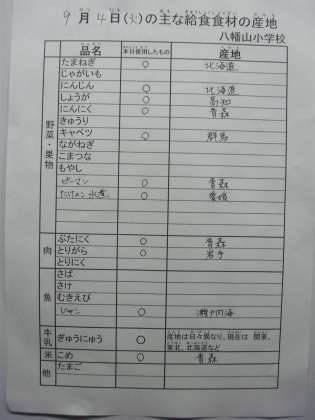 9月4日(火)の主な給食食材の産地
八幡山小学校
品名 本日使用したもの 産地
野菜・果物
たまねぎ ○ 北海道
じゃがいも
にんじん ○ 北海道
しょうが ○ 高知
にんにく ○ 青森
きゅうり
キャベツ ○ 群馬
ながねぎ
こまつな
もやし
ピーマン ○ 青森
たけのこ水煮 ○ 愛媛
肉
ぶたにく ○ 青森
とりがら ○ 岩手
とりにく
魚
さば
さけ
むきえび
じゃこ ○ 瀬戸内海
牛乳 ぎゅうにゅう ○ 産地は日々異なり、現在は 関東、
東北、北海道など
米 こめ ○ 青森
他 たまご